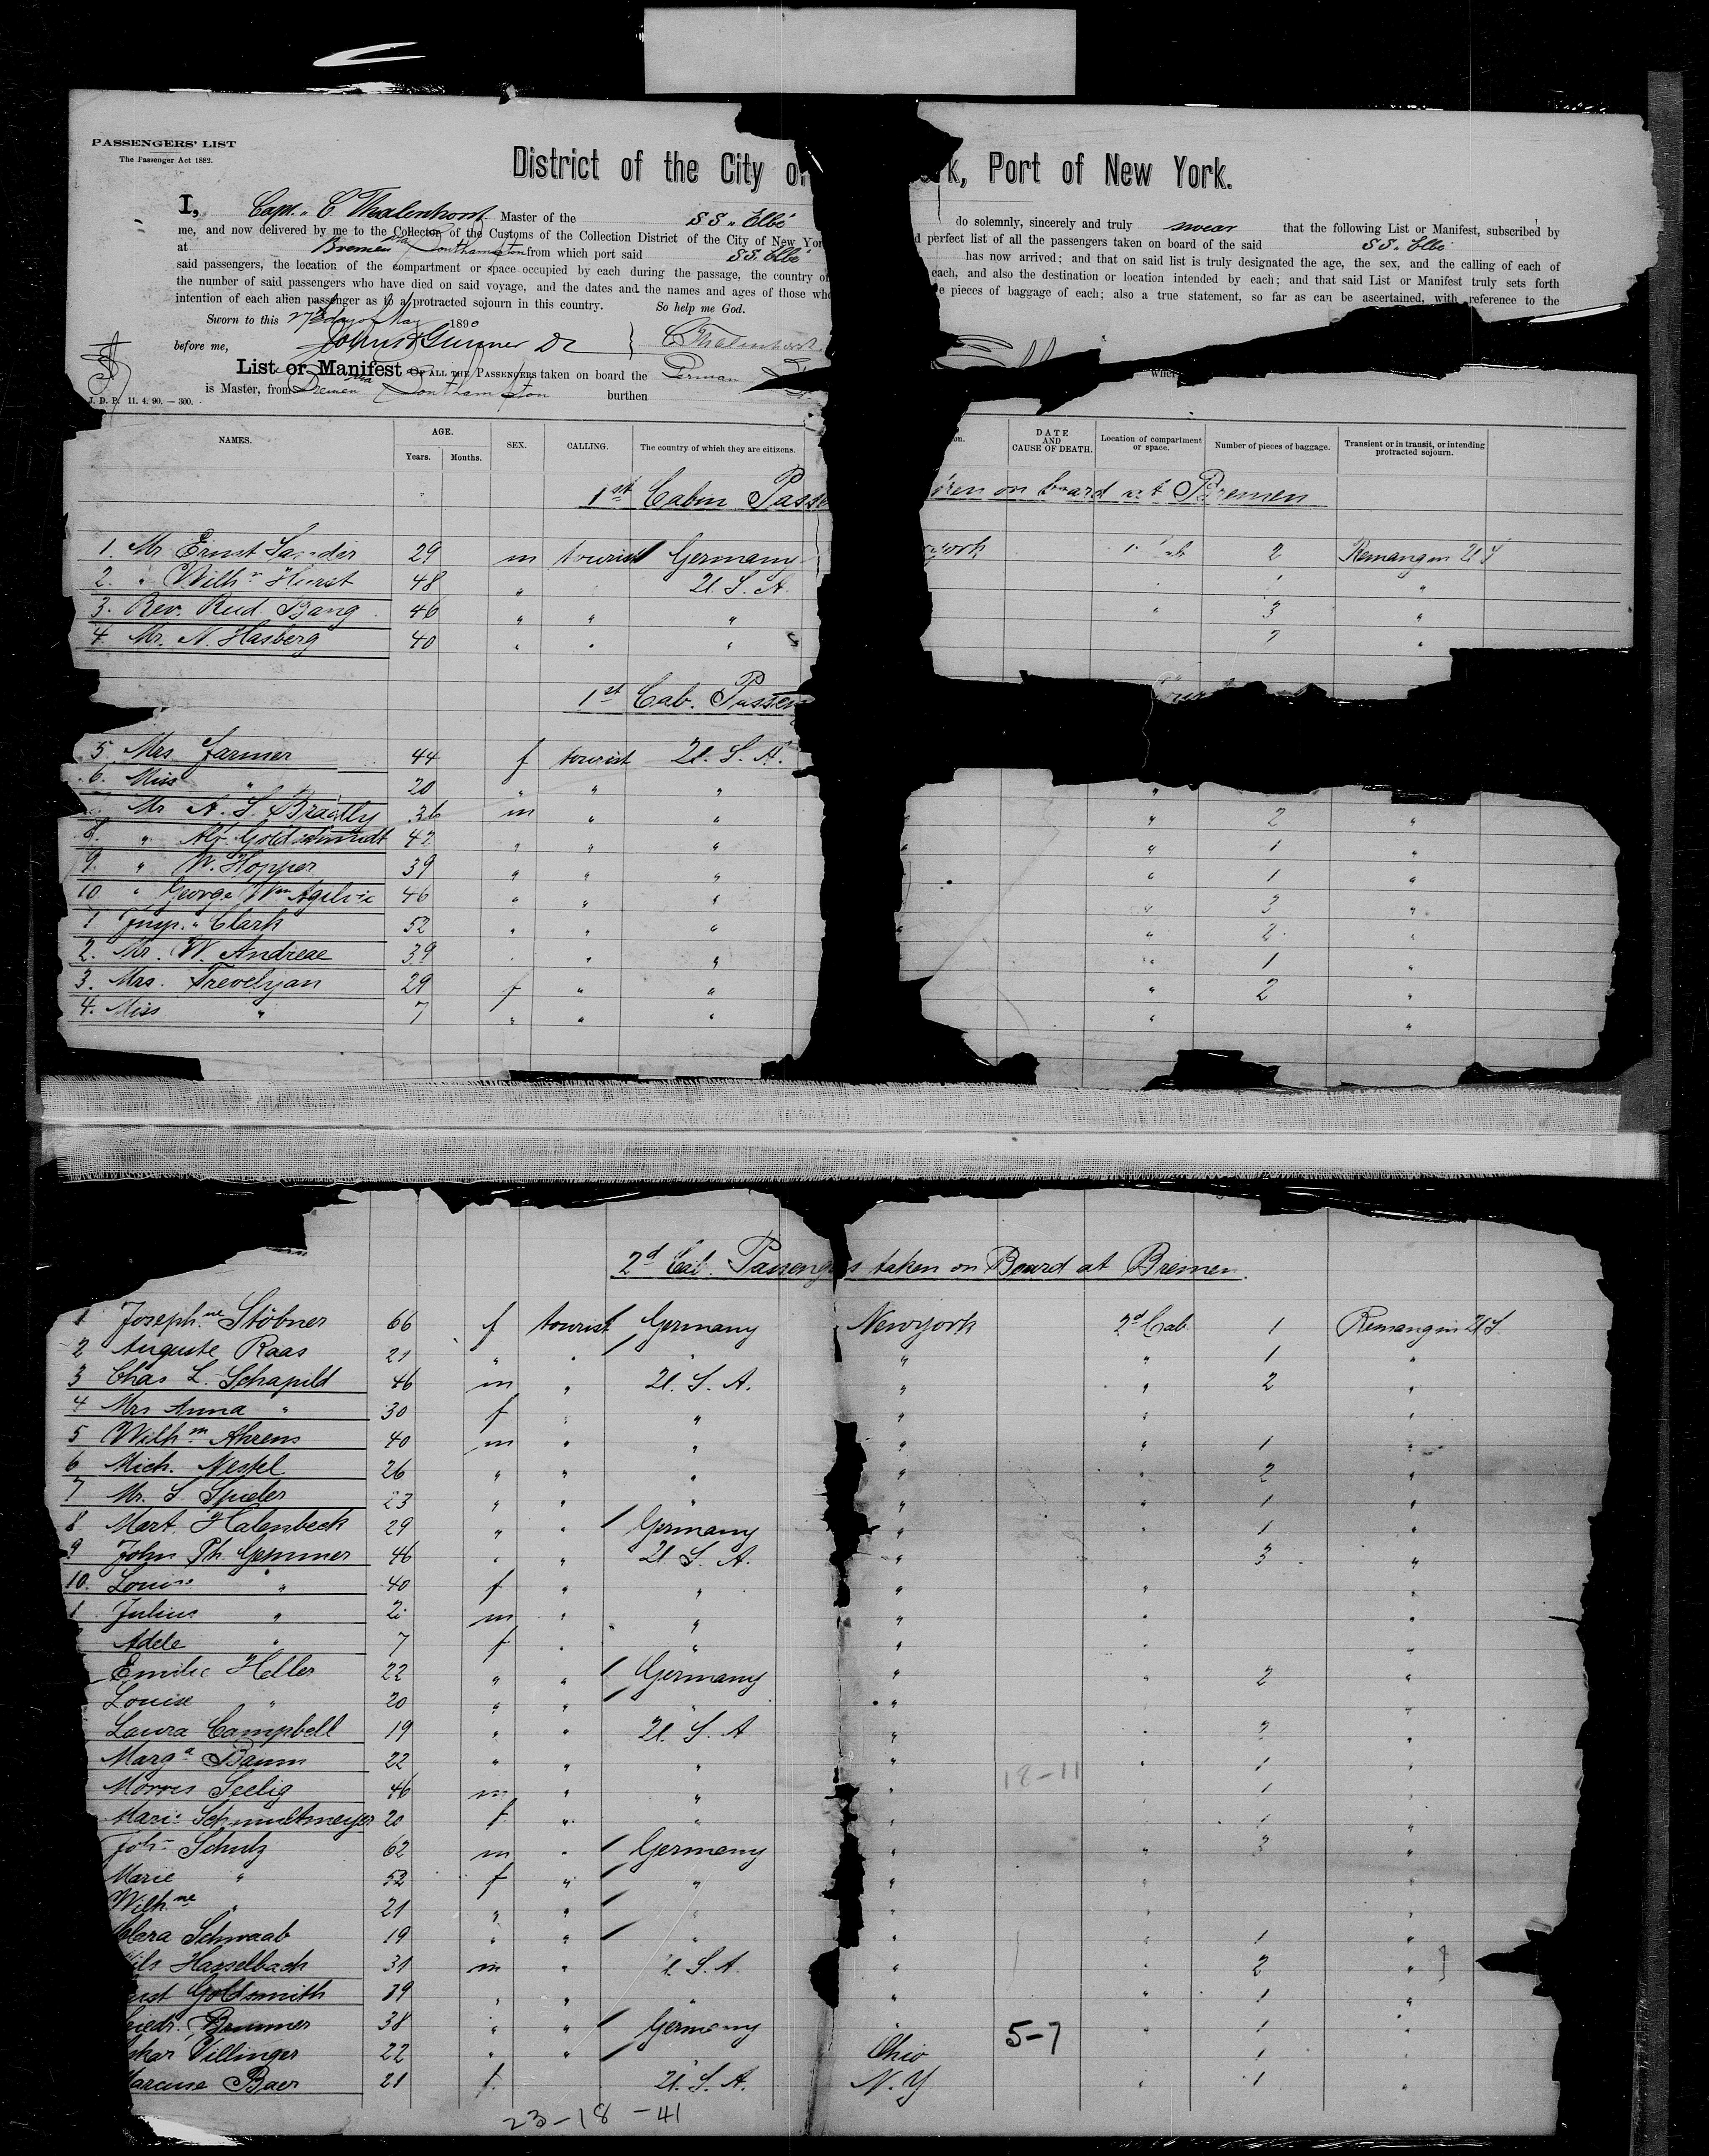 PASSENGERS' LIST
The Passenger Act 1882.
District of the City of rk, Port of New York.
I, Capt. C. Thalenhorst Master of the S S „ Elbe" do solemnly, sincerely and truly swear that the following List or Manifest, subscribed by
me, and now delivered by me to the Collector of the Customs of the Collection District of the City of New Yor d perfect list of all the passengers taken on board of the said S S „ Elbe
at Bremen via Southampton from which port said SS. Elbe has now arrived; and that on said list is truly designated the age, the sex, and the calling of each of
said passengers, the location of the compartment or space occupied by each during the passage, the country o each, and also the destination or location intended by each; and that said List or Manifest truly sets forth
the number of said passengers who have died on said voyage, and the dates and the names and ages of those who e pieces of baggage of each; also a true statement, so far as can be ascertained, with reference to the
intention of each alien passenger as to a protracted sojourn in this country. So help me God.
Sworn to this 27th day of May 1890
before me, C Thalenhorst
List or Manifest OF ALL THE PASSENGERS taken on board the German
is Master, from Bremen via Southampton burthen
J. D. P. 11. 4. 90. — 300.
NAMES. AGE. Years. Months. SEX. CALLING. The country of which they are citizens. on. DATE AND CAUSE OF DEATH. Location of compartment or space. Number of pieces of baggage. Transient or in transit, or intending protracted sojourn.
1st Cabin Passe ken on board at Bremen
1. Mr Ernst Sander 29 m tourist Germany York 2 Remang in U S
2. " Wilhm Hurst 48 " U. S. A. "
3. Rev. Rud. Bang 46 " " " " 3 "
4. Mr. N. Hasberg 40 " " " "
1st Cab. Passen
5 Mrs Farmer 44 f tourist U. S. A.
6. Miss " 20 " " " "
Mr A. S. Bradlly 36 m " " " 2 "
8. " Alf. Goldschmidt 42 " " " " 1 "
9. " W. Hopper 39 " " " " 1 "
10 " George Wm 46 " " " " 3 "
1 " Clark 52 " " " " 2 "
2. Mr. W. Andreae 39 " " " " 1 "
3. Mrs. Trevelyan 29 f " " " 2 "
4. Miss " 7 " " " " "
2d Cab. Passengers taken on Board at Bremen.
1 Josephne Stöbner 66 f tourist Germany Newyork 2d Cab. 1 Remang in U S.
2 Auguste Raas 21 " " " " " 1 "
3 Chas L. Schapild 46 m " U. S. A. " " 2 "
4 Mrs Anna " 30 f " " " " "
5 Wilhm Ahrens 40 m " " " " 1 "
6 Mich. Nestel 26 " " " " " 2 "
7 Mr. S Spieler 23 " " " " " 1 "
8 Mart. Halenbeck 29 " " Germany " " 1 "
9 John Ph. Gemmer 46 " " U. S. A. " 3 "
10. Louise " 40 f " " " " "
1 Julius " m " " " " "
Adele " 7 f " " " " "
Emilie Heller 22 " " Germany " " 2 "
Louise " 20 " " " " "
Laura Campbell 19 " " U. S. A " " "
Marga Baum 22 " " " " " 1 "
18-11
Morris Seelig 46 m " " " " 1 "
Marie 20 f " " " " 1 "
John Schulz 62 m " Germany " " 3 "
Marie " 52 f " " " " "
Wilhne " 21 " " " " " "
Clara Schwaab 19 " " " " " 1 "
Hasselbach 31 m " U. S. A. " " 2 "
Goldsmith 39 " " " " " 1 "
iedr. Bemmer 38 " " Germany " " 1 "
5-7
skar Villinger 22 " " Ohio 1
Baer 21 f. U. S. A. N. Y " 1 "
23-18-41